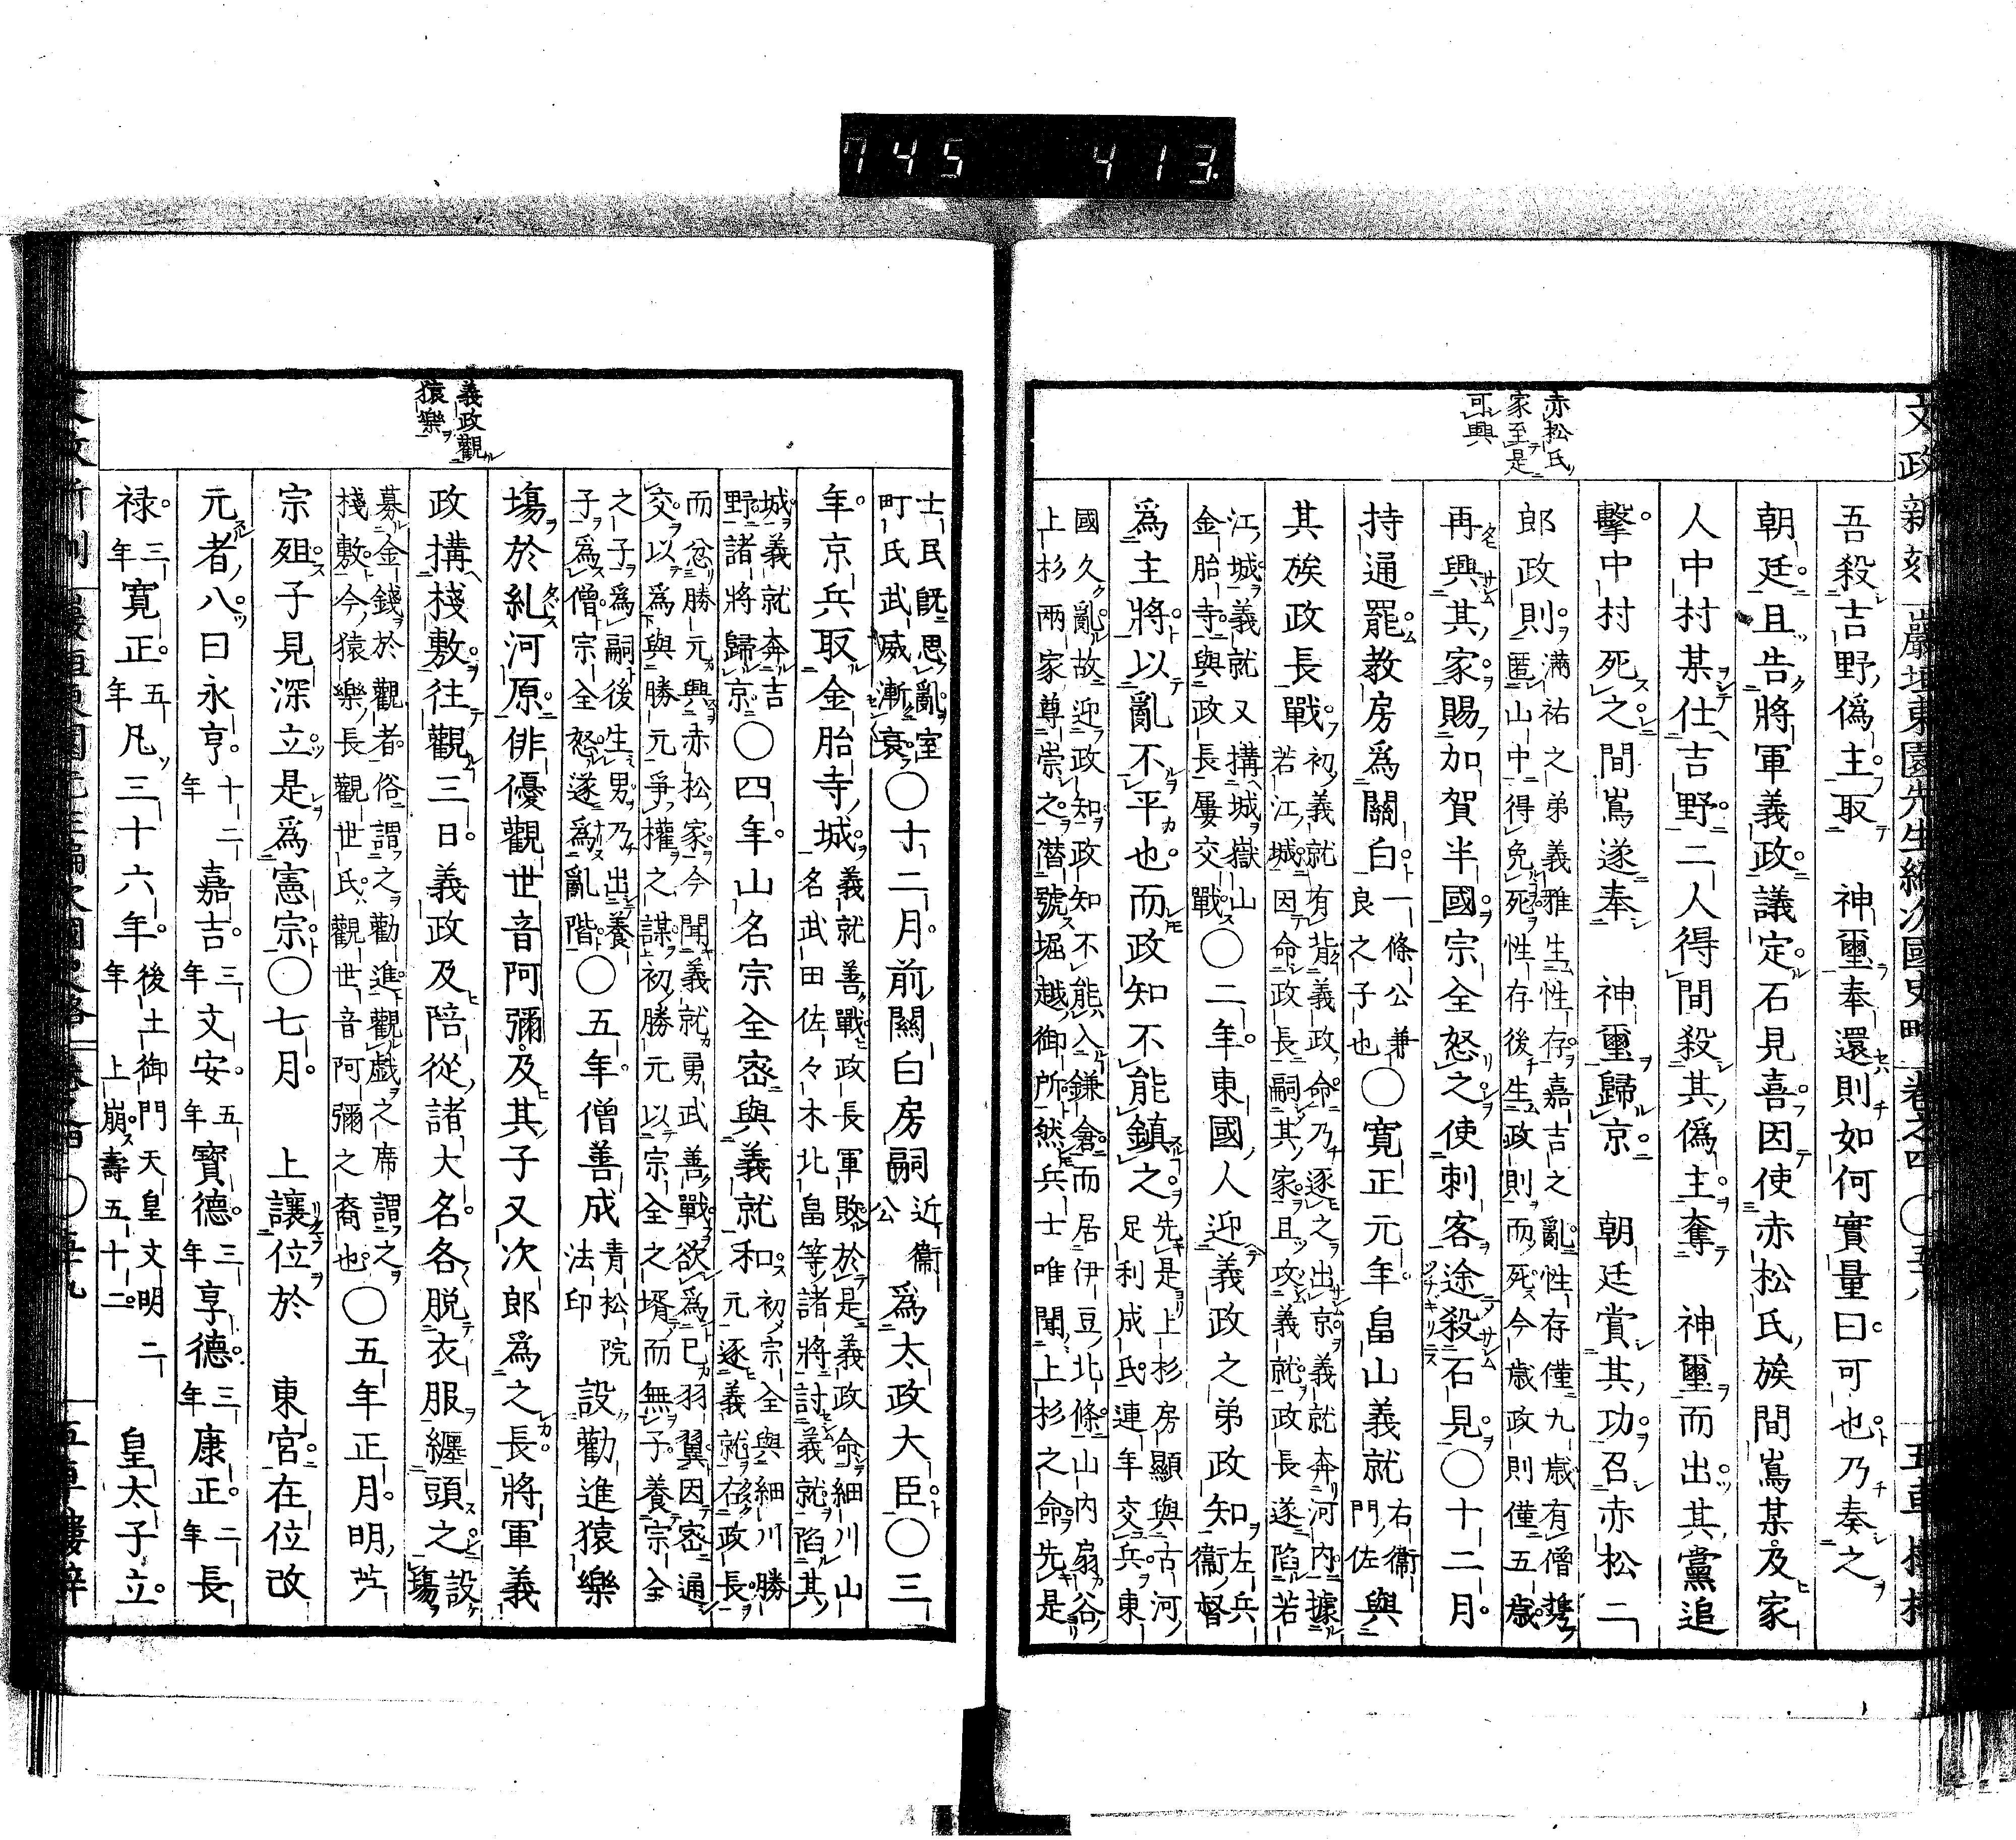 745 413.
文政新刻 巖垣東園先生編次國史略 卷之四 〇五十八 五車樓梓
赤松氏
家至是
可興
吾殺吉野僞主取 神璽奉還則如何實量曰可也乃奏之
朝廷且告將軍義政議定石見喜因使赤松氏族間嶌某及家
人中村某仕吉野二人得間殺其僞主奪 神璽而出其黨追
擊中村死之間嶌遂奉 神璽歸京 朝廷賞其功召赤松二
郎政則滿祐之弟義雅生性存嘉吉之亂性存僅九歲有僧
匿山中得免死性存後生政則而死今歲政則僅五歲
再興其家賜加賀半國宗全怒之使刺客途殺石見〇十二月
持通罷教房爲關白一條公兼良之子也〇寬正元年畠山義就右衞門佐與
其族政長戰初義就有背義政命乃逐之出京義就奔河內據
若江城因命政長嗣其家且攻義就政長遂陷若
江城義就又搆城嶽山
金胎寺與政長屢交戰〇二年東國人迎義政之弟政知左兵衞督
爲主將以亂不平也而政知不能鎮之先是上杉房顯與古河
足利成氏連年交兵東
國久亂故迎政知政知不能入鎌倉而居伊豆北條山內扇谷
上杉兩家尊崇之潛號堀越御所然兵士唯聞上杉之命先是
士民旣思亂室
町氏武威漸衰〇十二月前關白房嗣近衞公爲太政大臣〇三
年京兵取金胎寺城義就善戰政長軍敗於是義政命細川山
名武田佐々木北畠等諸將討義就陷其
城義就奔吉
野諸將歸京〇四年山名宗全密與義就和初宗全與細川勝
元逐義就右政長
而忿勝元興赤松家今聞義就勇武善戰欲爲已羽翼因密通
交以爲與勝元爭權之謀初勝元以宗全之壻而無子養宗全
之子爲嗣後生男乃出養
子爲僧宗全怒遂爲亂階〇五年僧善成青松院法印設勸進猿樂
塲於糺河原俳優觀世音阿彌及其子又次郎爲之長將軍義
政搆棧敷往觀三日義政及陪從諸大名各脱衣服纒頭之設塲
募金錢於觀者俗謂之勸進觀戲之席謂之
棧敷今猿樂長觀世氏觀世音阿彌之裔也〇五年正月明英
宗殂子見深立是爲憲宗〇七月 上讓位於 東宮在位改
元者八曰永亨十二年嘉吉三年文安五年寳德三年享德三年康正二年長
祿三年寬正五年凡三十六年後土御門天皇文明二年上崩壽五十二 皇太子立
義政觀
猿樂